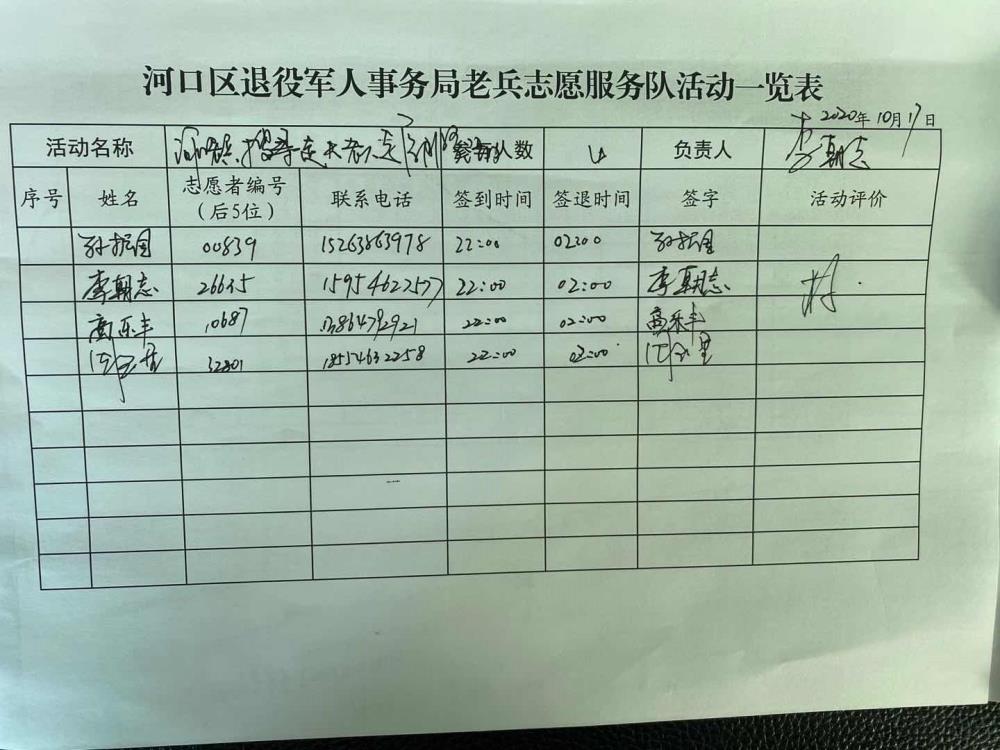 河口区退役军人事务局老兵志愿服务队活动一览表
2020年10月17日
活动名称 人数 4 负责人 李朝志
序号 姓名 志愿者编号（后5位） 联系电话 签到时间 签退时间 签字 活动评价
孙振国 00839 15263863978 22:00 02:00 孙振国
李朝志 26615 15954622577 22:00 02:00 李朝志 好.
高乐丰 10687 13864782921 22:00 02:00 高乐丰
32801 18554632258 22:00 02:00